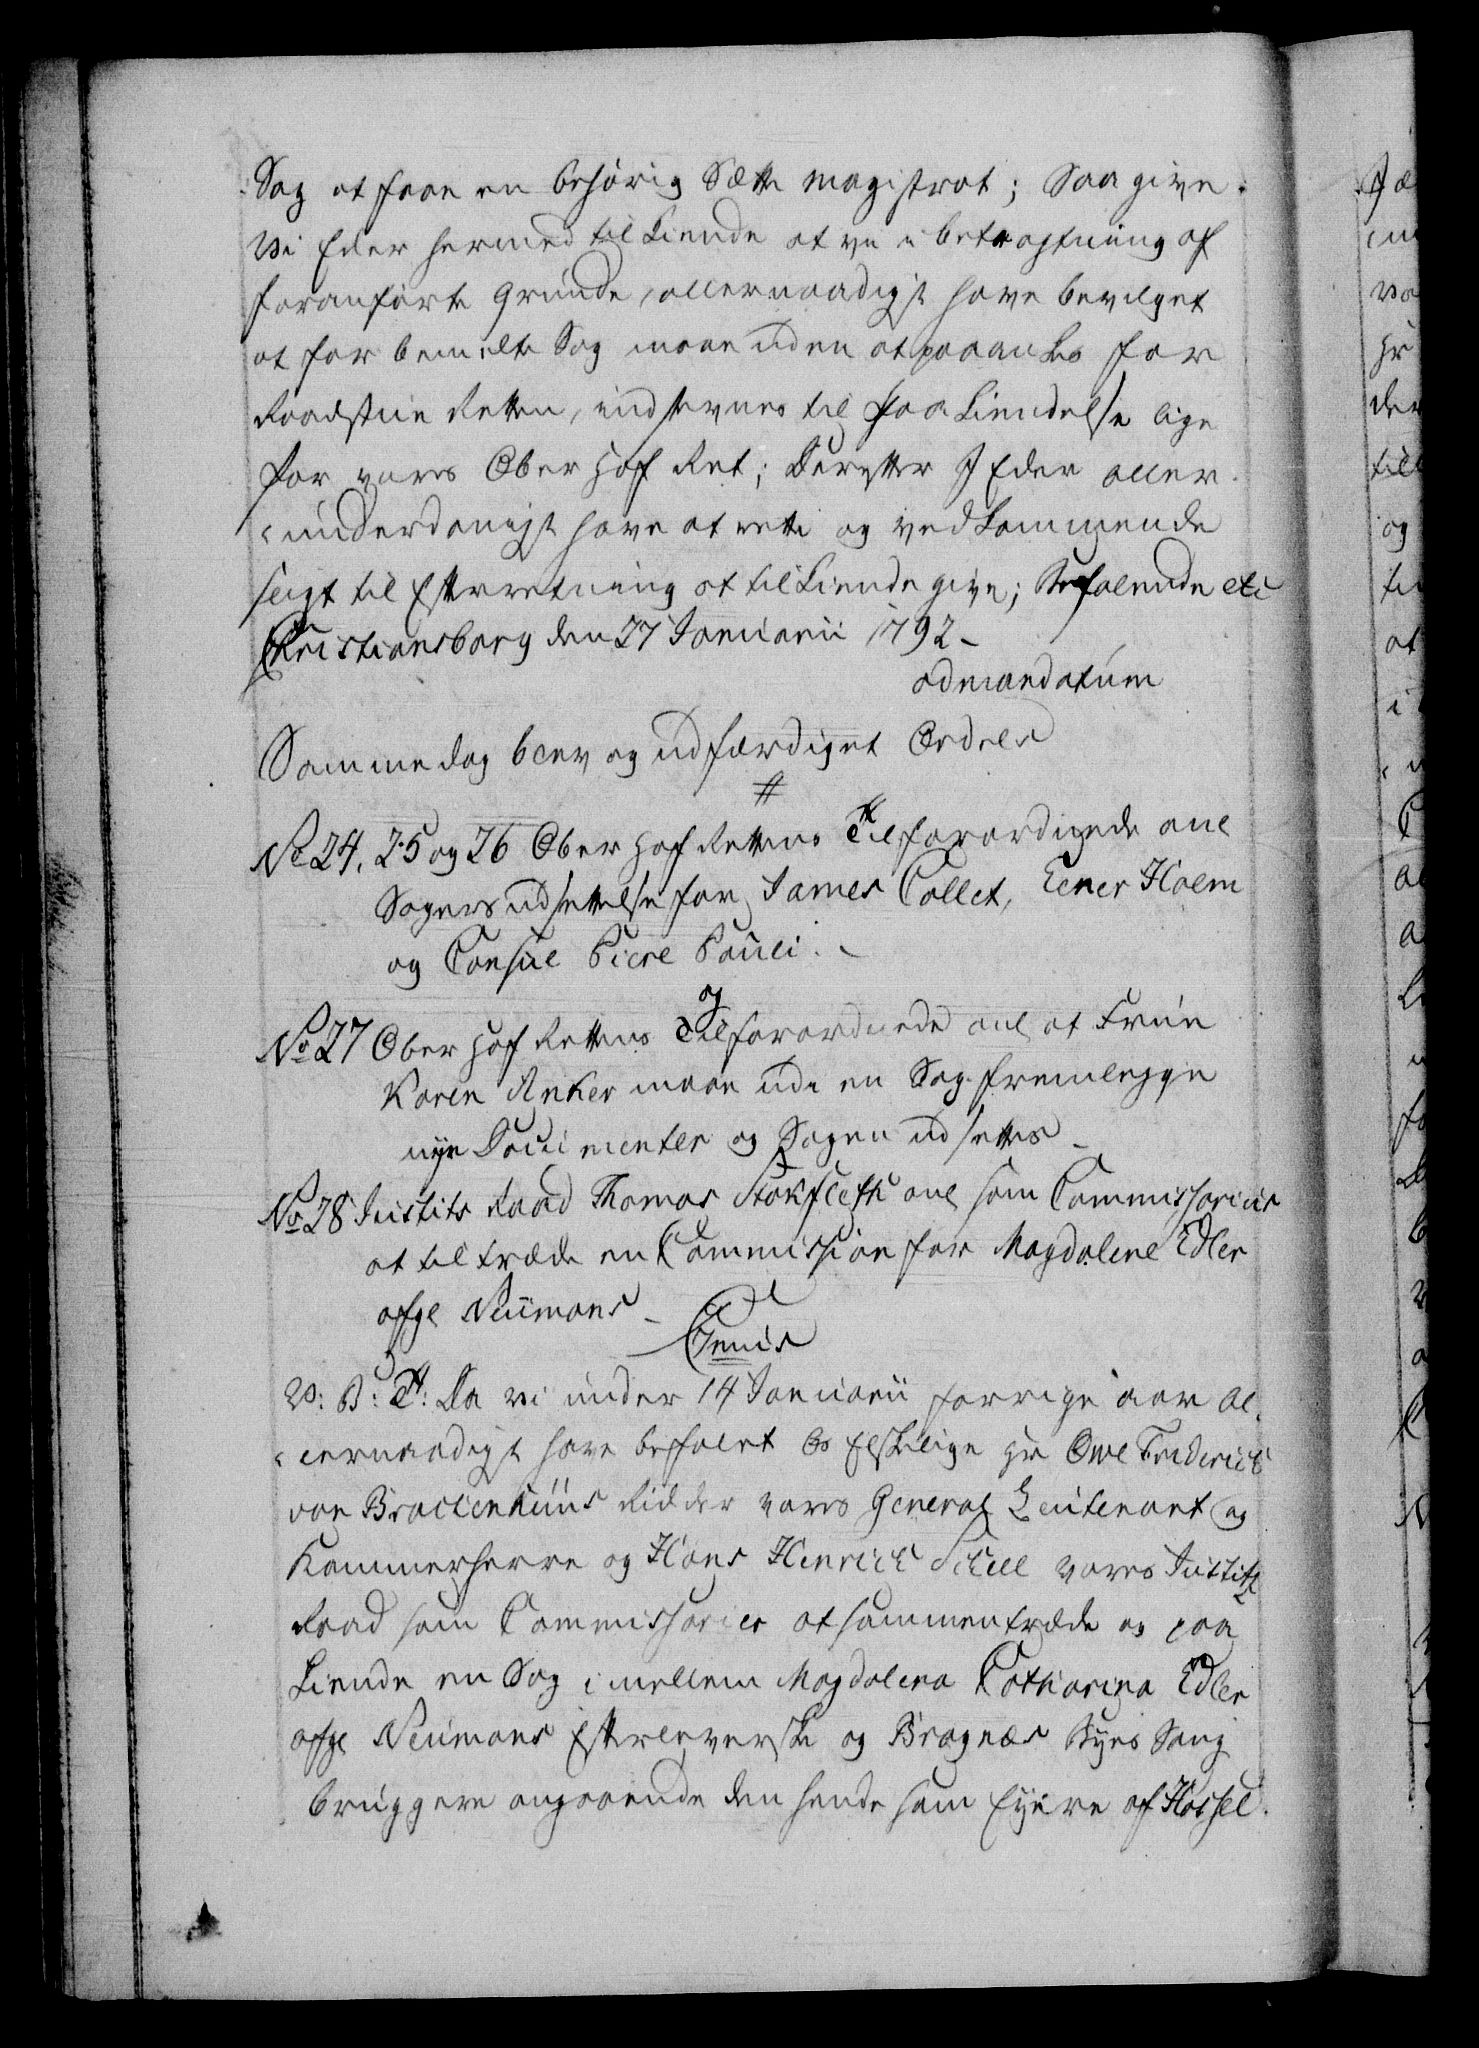 Sag at faae en behørig Sætte Magistrat; Saa give
Vi Eder hermed tilkiende at vi i betragtning af
foranførte Grunde, allernaadigst have bevilget
at for bemelte Sag maae uden at paaankes for
Raadstue Retten, indstevnes til Paakiendelse lige
for vores Ober Hof Ret; Derefter I Eder aller-
underdanigst have at rette og vedkommende
sligt til Efterretning at tilkiende give; Befalende etc
Christiansborg den 27 Januarii 1792 -
admandatum
Samme dag blev og udfærdiget Ordres
#
No 24, 25 og 26 Ober Hof Rettens Tilforordnede anl
Sagers udsettelse for James Collet, Ener Holm
og Consul Piere Pauli. -
No 27 Ober Hof Rettens Tilforordnede anl at Frue
og
Karen Anker maae udi en Sag fremlegge
nye Documenter og Sagen udsettes -
No 28 Justits Raad Thomas Stokfleth anl som Commissarius
at tiltræde en Commission for Magdalene Edler
afge Neumans -
Genis
V: B: T: Da vi under 14 Januarii forrige aar al-
lernaadigst have befalet Os Elskelige Hr Owe Friderich
von Brackenhuus Ridder vores General Leutenant og
Kammerherre og Hans Henrich Scheel vores Justitz
Raad som Commissarier at sammentræde og paa
kiende en Sag imellem Magdalena Catharina Edler
afge Neumans Efterleverske og Bragnæs Byes Saug
bruggere angaaende den hende som Eyere af Hassel